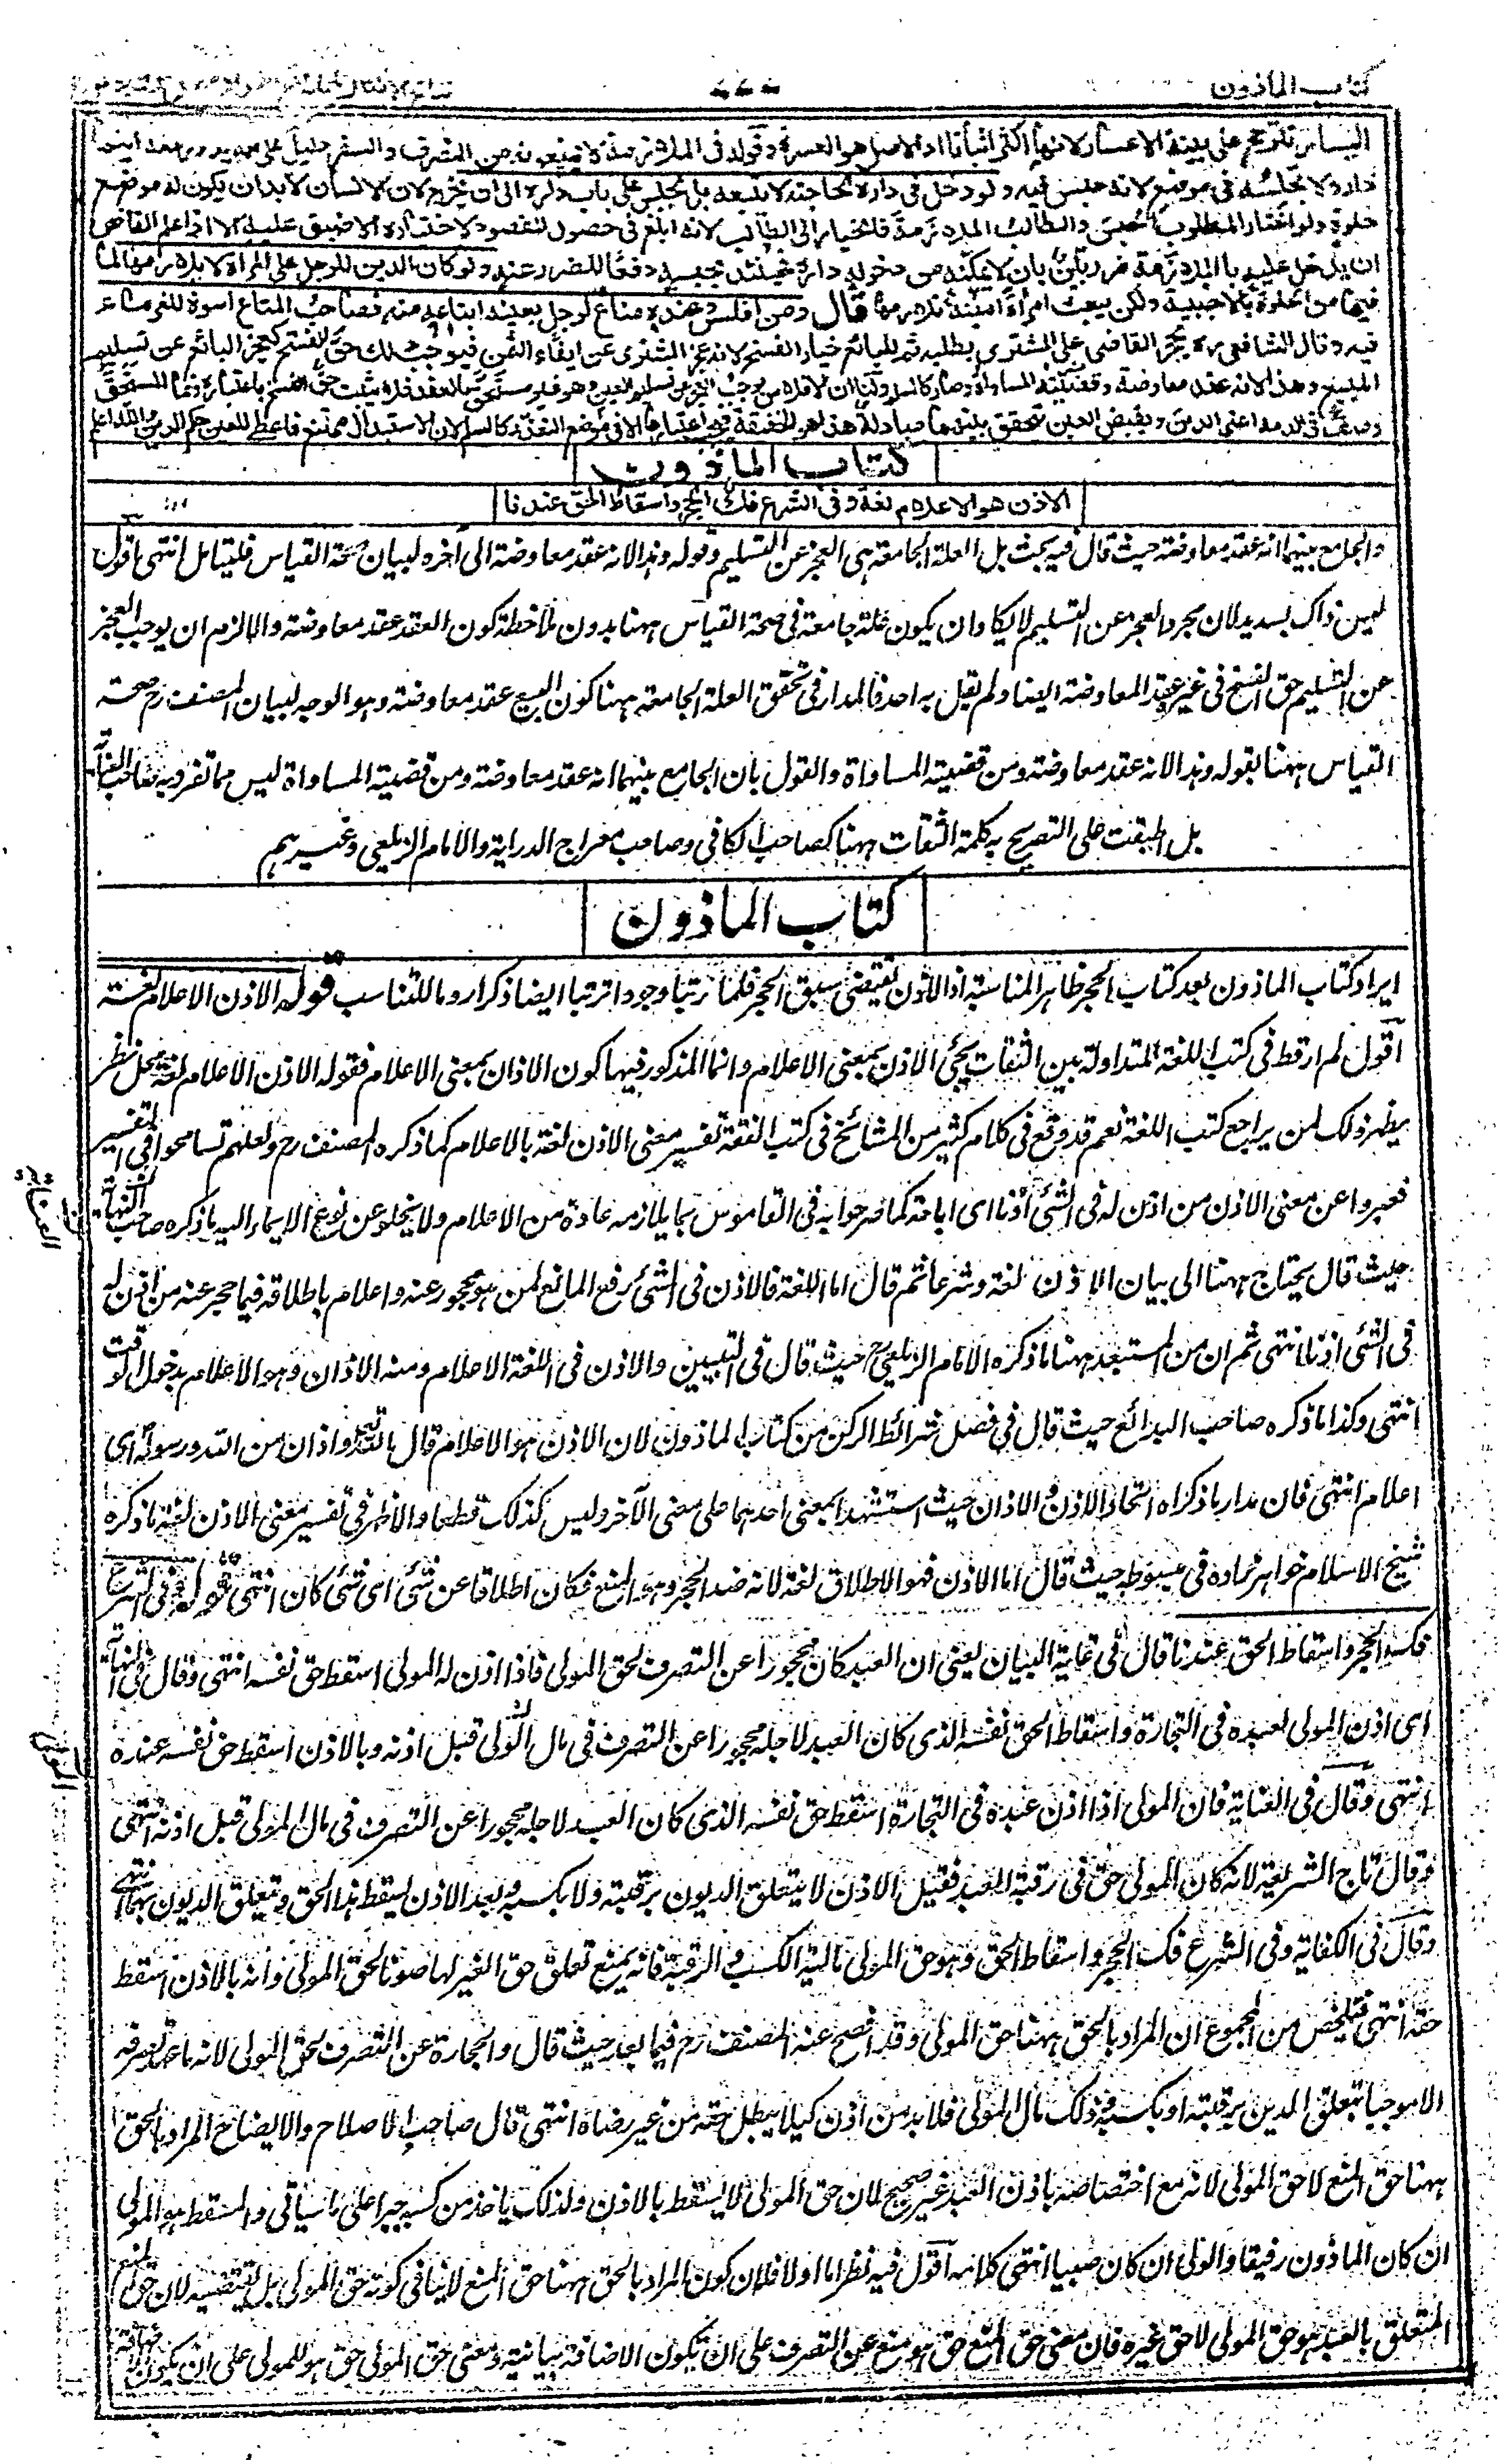 كتاب الماذون
اليسار تترجح على بينة الاعسار لانها اكثر اثباتا اذ الاصل هو العسرة وقوله فى الملازمة لا يمنعونه من التصرف والسفر دليل على انه يدور معه اينما
دار ولا يجلسه فى موضع لانه حبس فيه ولو دخل فى داره لحاجته لا يتبعه بل يجلس على باب داره الى ان يخرج لان الانسان لابد ان يكون له موضع
خلوة ولو اختار المطلوب الحبس والطالب الملازمة فالخيار الى الطالب لانه ابلغ فى حصول المقصود لاختياره الاضيق عليه الا اذا علم القاضى
ان يدخل عليه بالملازمة ضرر بين بان لا يمكنه من دخوله داره فحينئذ يحبسه دفعا للضرر عنه ولو كان الدين للرجل على المرأة لا يلازمها لما
فيها من الخلوة بالاجنبية ولكن يبعث امرأة امينة تلازمها قال ومن افلس وعنده متاع لرجل بعينه ابتاعه منه فصاحب المتاع اسوة للغرماء
فيه وقال الشافعى رح يحجر القاضى على المشترى بطلبه ثم للبائع خيار الفسخ لانه عجز المشترى عن ايفاء الثمن فيوجب ذلك حق الفسخ كعجز البائع عن تسليم
المبيع وهذا لانه عقد معاوضة وقضيته المساواة وصار كالسلم ولنا ان الافلاس يوجب العجز عن تسليم العين وهو غير مستحق بالعقد فلا يثبت حق الفسخ باعتباره وانما المستحق
وصف فى الذمة اعنى الدين وبقبض العين تتحقق بينهما مبادلة هذا هو الحقيقة فيجب اعتبارها الا فى موضع التعذر كالسلم لان الاستبدال ممتنع فاعطى للعين حكم الدين والله اعلم
كتاب الماذون
الاذن هو الاعلام لغة وفى الشرع فك الحجر واسقاط الحق عندنا
والجامع بينهما انه عقد معاوضة حيث قال فيه بحث بل العلة الجامعة هى العجز عن التسليم وقوله وهذا لانه عقد معاوضة الى آخره لبيان صحة القياس فليتامل انتهى اقول
ليس ذاك بسديد لان مجرد العجز عن التسليم لا يكاد ان يكون علة جامعة فى صحة القياس ههنا بدون ملاحظة كون العقد عقد معاوضة والا لزم ان يوجب العجز
عن التسليم حق الفسخ فى غير عقد المعاوضة ايضا ولم يقل به احد فالمدار فى تحقق العلة الجامعة ههنا كون البيع عقد معاوضة وهو الوجه لبيان المصنف رح صحة
القياس ههنا بقوله وهذا لانه عقد معاوضة ومن قضيته المساواة والقول بان الجامع بينهما انه عقد معاوضة ومن قضيته المساواة ليس مما تفرد به صاحب العناية
بل اطبقت على التصريح به كلمة الثقات ههنا كصاحب الكافى وصاحب معراج الدراية والامام الزيلعى وغيرهم
كتاب الماذون
ايراد كتاب الماذون بعد كتاب الحجر ظاهر المناسبة اذ الاذن يقتضى سبق الحجر فلما ترتبا وجودا ترتبا ايضا ذكرا روما للتناسب قوله الاذن الاعلام لغة
اقول لم ار قط فى كتب اللغة المتداولة بين الثقات مجئ الاذن بمعنى الاعلام وانما المذكور فيها كون الاذان بمعنى الاعلام فقوله الاذن الاعلام لغة محل نظر
يظهر ذلك لمن يراجع كتب اللغة نعم قد وقع فى كلام كثير من المشائخ فى كتب الفقه تفسير معنى الاذن لغة بالاعلام كما ذكره المصنف رح ولعلهم تسامحوا فى التفسير
فعبروا عن معنى الاذن من اذن له فى الشئ اذنا اى اباحه كما صرحوا به فى القاموس بما يلازمه عادة من الاعلام ولا يخلو عن نوع الايماء اليه ما ذكره صاحب النهاية
حيث قال يحتاج ههنا الى بيان الاذن لغة وشرعا ثم قال اما اللغة فالاذن فى الشئ رفع المانع لمن هو محجور عنه واعلام باطلاقه فيما حجر عنه من اذن له
فى الشئ اذنا انتهى ثم ان من المستبعد ههنا ما ذكره الامام الزيلعى رح حيث قال فى التبيين والاذن فى اللغة الاعلام ومنه الاذان وهو الاعلام بدخول الوقت
انتهى وكذا ما ذكره صاحب البدائع حيث قال فى فصل شرائط الركن من كتاب الماذون لان الاذن هو الاعلام قال الله تعالى واذان من الله ورسوله اى
اعلام انتهى فان مدار ما ذكراه اتحاد الاذن والاذان حيث استشهدا بمعنى احدهما على معنى الآخر وليس كذلك قطعا والاظهر فى تفسير معنى الاذن لغة ما ذكره
شيخ الاسلام خواهرزاده فى مبسوطه حيث قال اما الاذن فهو الاطلاق لغة لانه ضد الحجر وهو المنع فكان اطلاقا عن شئ اى شئ كان انتهى قوله وفى الشرع
فك الحجر واسقاط الحق عندنا قال فى غاية البيان يعنى ان العبد كان محجورا عن التصرف لحق المولى فاذا اذن له المولى اسقط حق نفسه انتهى وقال فى النهاية
اى اذن المولى لعبده فى التجارة واسقاط الحق نفسه الذى كان العبد لاجله محجورا عن التصرف فى مال المولى قبل اذنه وبالاذن اسقط حق نفسه عنده
انتهى وقال فى العناية فان المولى اذا اذن عبده فى التجارة اسقط حق نفسه الذى كان العبد لاجله محجورا عن التصرف فى مال المولى قبل اذنه انتهى
وقال تاج الشريعة لانه كان للمولى حق فى رقبة العبد فقبل الاذن لا يتعلق الديون برقبته ولا بكسبه وبعد الاذن يسقط هذا الحق ويتعلق الديون بهما انتهى
وقال فى الكفاية وفى الشرع فك الحجر واسقاط الحق وهو حق المولى مالية الكسب والرقبة فانه يمنع تعلق حق الغير لها صونا لحق المولى وانه بالاذن اسقط
حقه انتهى فتلخص من المجموع ان المراد بالحق ههنا حق المولى وقد افصح عنه المصنف رح فيما بعد حيث قال وانحجاره عن التصرف لحق المولى لانه ما عهد تصرفه
الا موجبا تعلق الدين برقبته او بكسبه وذلك مال المولى فلا بد من اذن كيلا يبطل حقه من غير رضاه انتهى قال صاحب الاصلاح والايضاح المراد بالحق
ههنا حق المنع لا حق المولى لانه مع اختصاصه باذن العبد غير صحيح لان حق المولى لا يسقط بالاذن ولذلك ياخذ من كسبه جبرا على ما سياتى والمسقط هو المولى
ان كان الماذون رقيقا والولى ان كان صبيا انتهى كلامه اقول فيه نظر اما اولا فلان كون المراد بالحق ههنا حق المنع لا ينافى كونه حق المولى بل يقتضيه لان حق المنع
المتعلق بالعبد هو حق المولى لا حق غيره فان معنى حق المنع حق هو منع عن التصرف على ان يكون الاضافة بيانية ومعنى حق المولى حق هو للمولى على ان يكون الاضافة